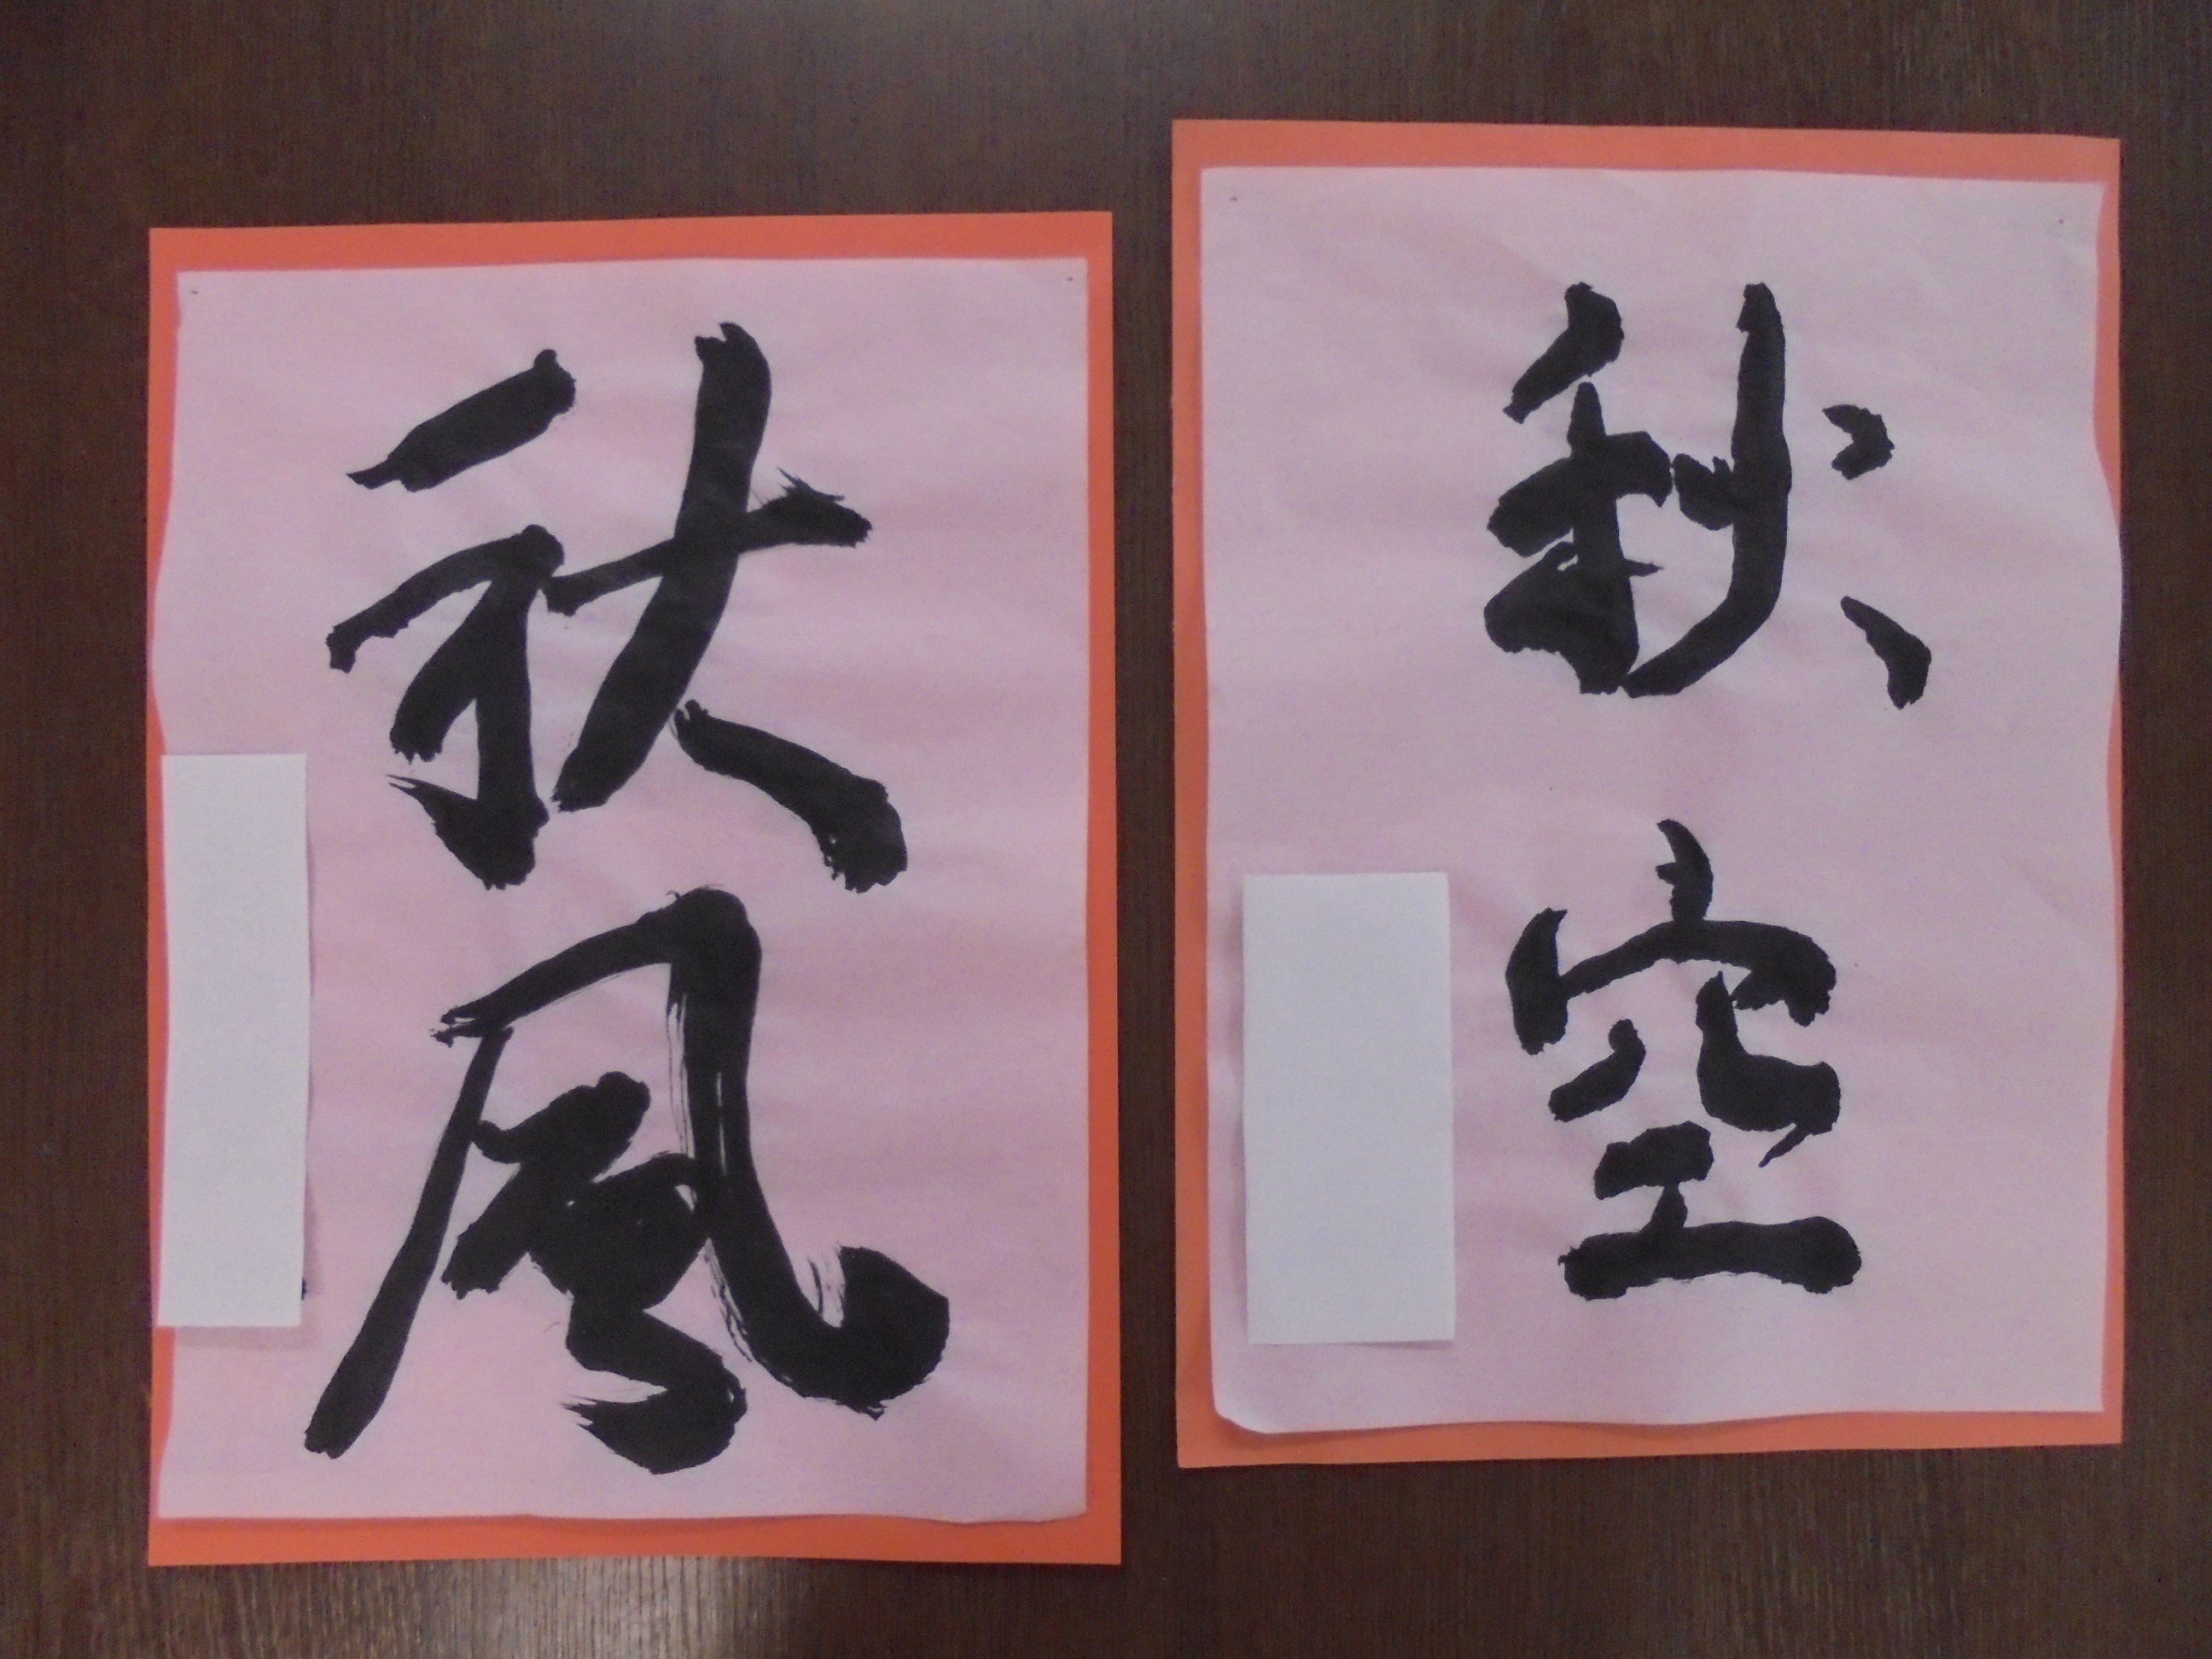 秋空
秋風